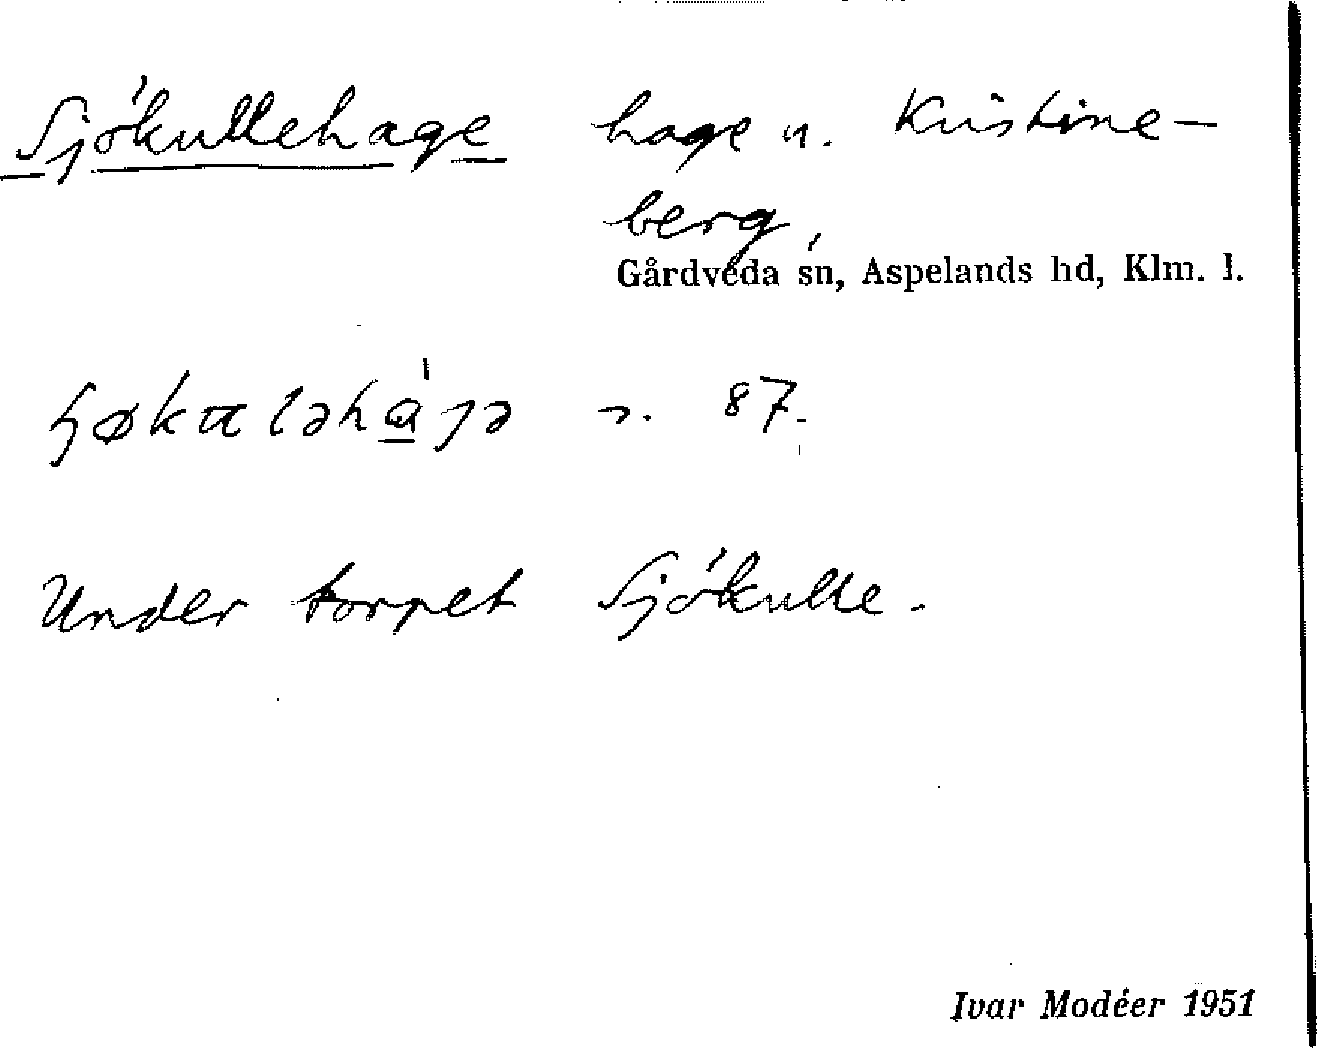 Sjökullehage hage u. Kristine-
berg,
Gårdveda sn, Aspelands hd, Klm. l.
87.
Under torpet Sjökulle.
Ivar Modéer 1951